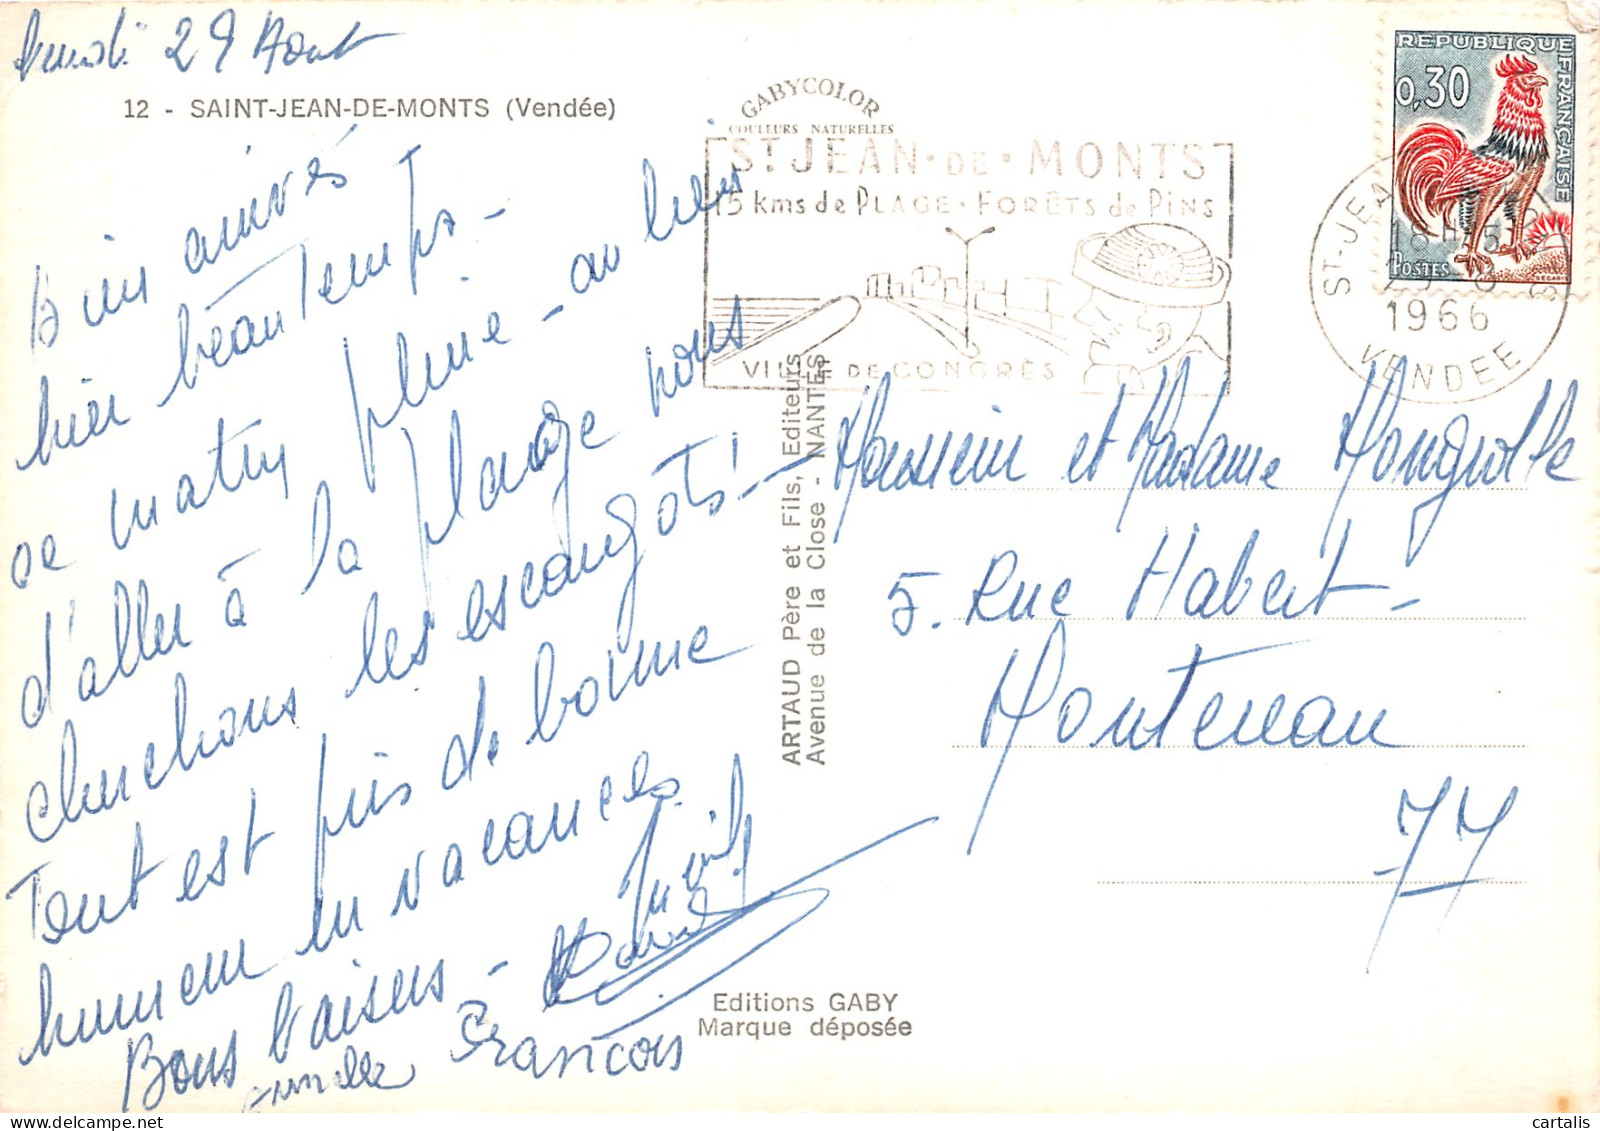 Lundi 29 Aout
12 - SAINT-JEAN-DE-MONTS (Vendée)
Bien arrivés
hier beau temps -
ce matin pluie - au lieu
d'aller à la plage nous
cherchons les escargots! -
Tout est pris de bonne
humeur en vacances
Bons baisers -
François
GABYCOLOR
COULEURS NATURELLES
ST JEAN · DE · MONTS
15 kms de PLAGE · FORÊTS de PINS
VILLE DE CONGRÈS
REPUBLIQUE FRANÇAISE
0,30
POSTES
DECARIS
ST-JEAN
18 H 15
1966
VENDEE
ARTAUD Père et Fils, Editeurs
Avenue de la Close - NANTES
Monsieur et Madame
5. Rue Habert -
Montereau
77
Editions GABY
Marque déposée
cartalis